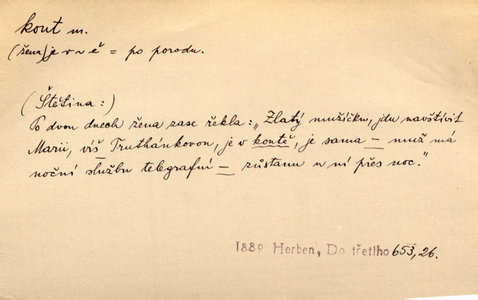 kout m.
(žena) je v ~ ě = po porodu.
(Štětina:)
Po dvou dnech žena zase řekla: „Zlatý mužíčku, jdu navštívit
Marii, víš Truthánkovou, je v koutě, je sama — muž má
noční službu telegrafní — zůstanu u ní přes noc."
1889 Herben, Do třetího 653, 26.